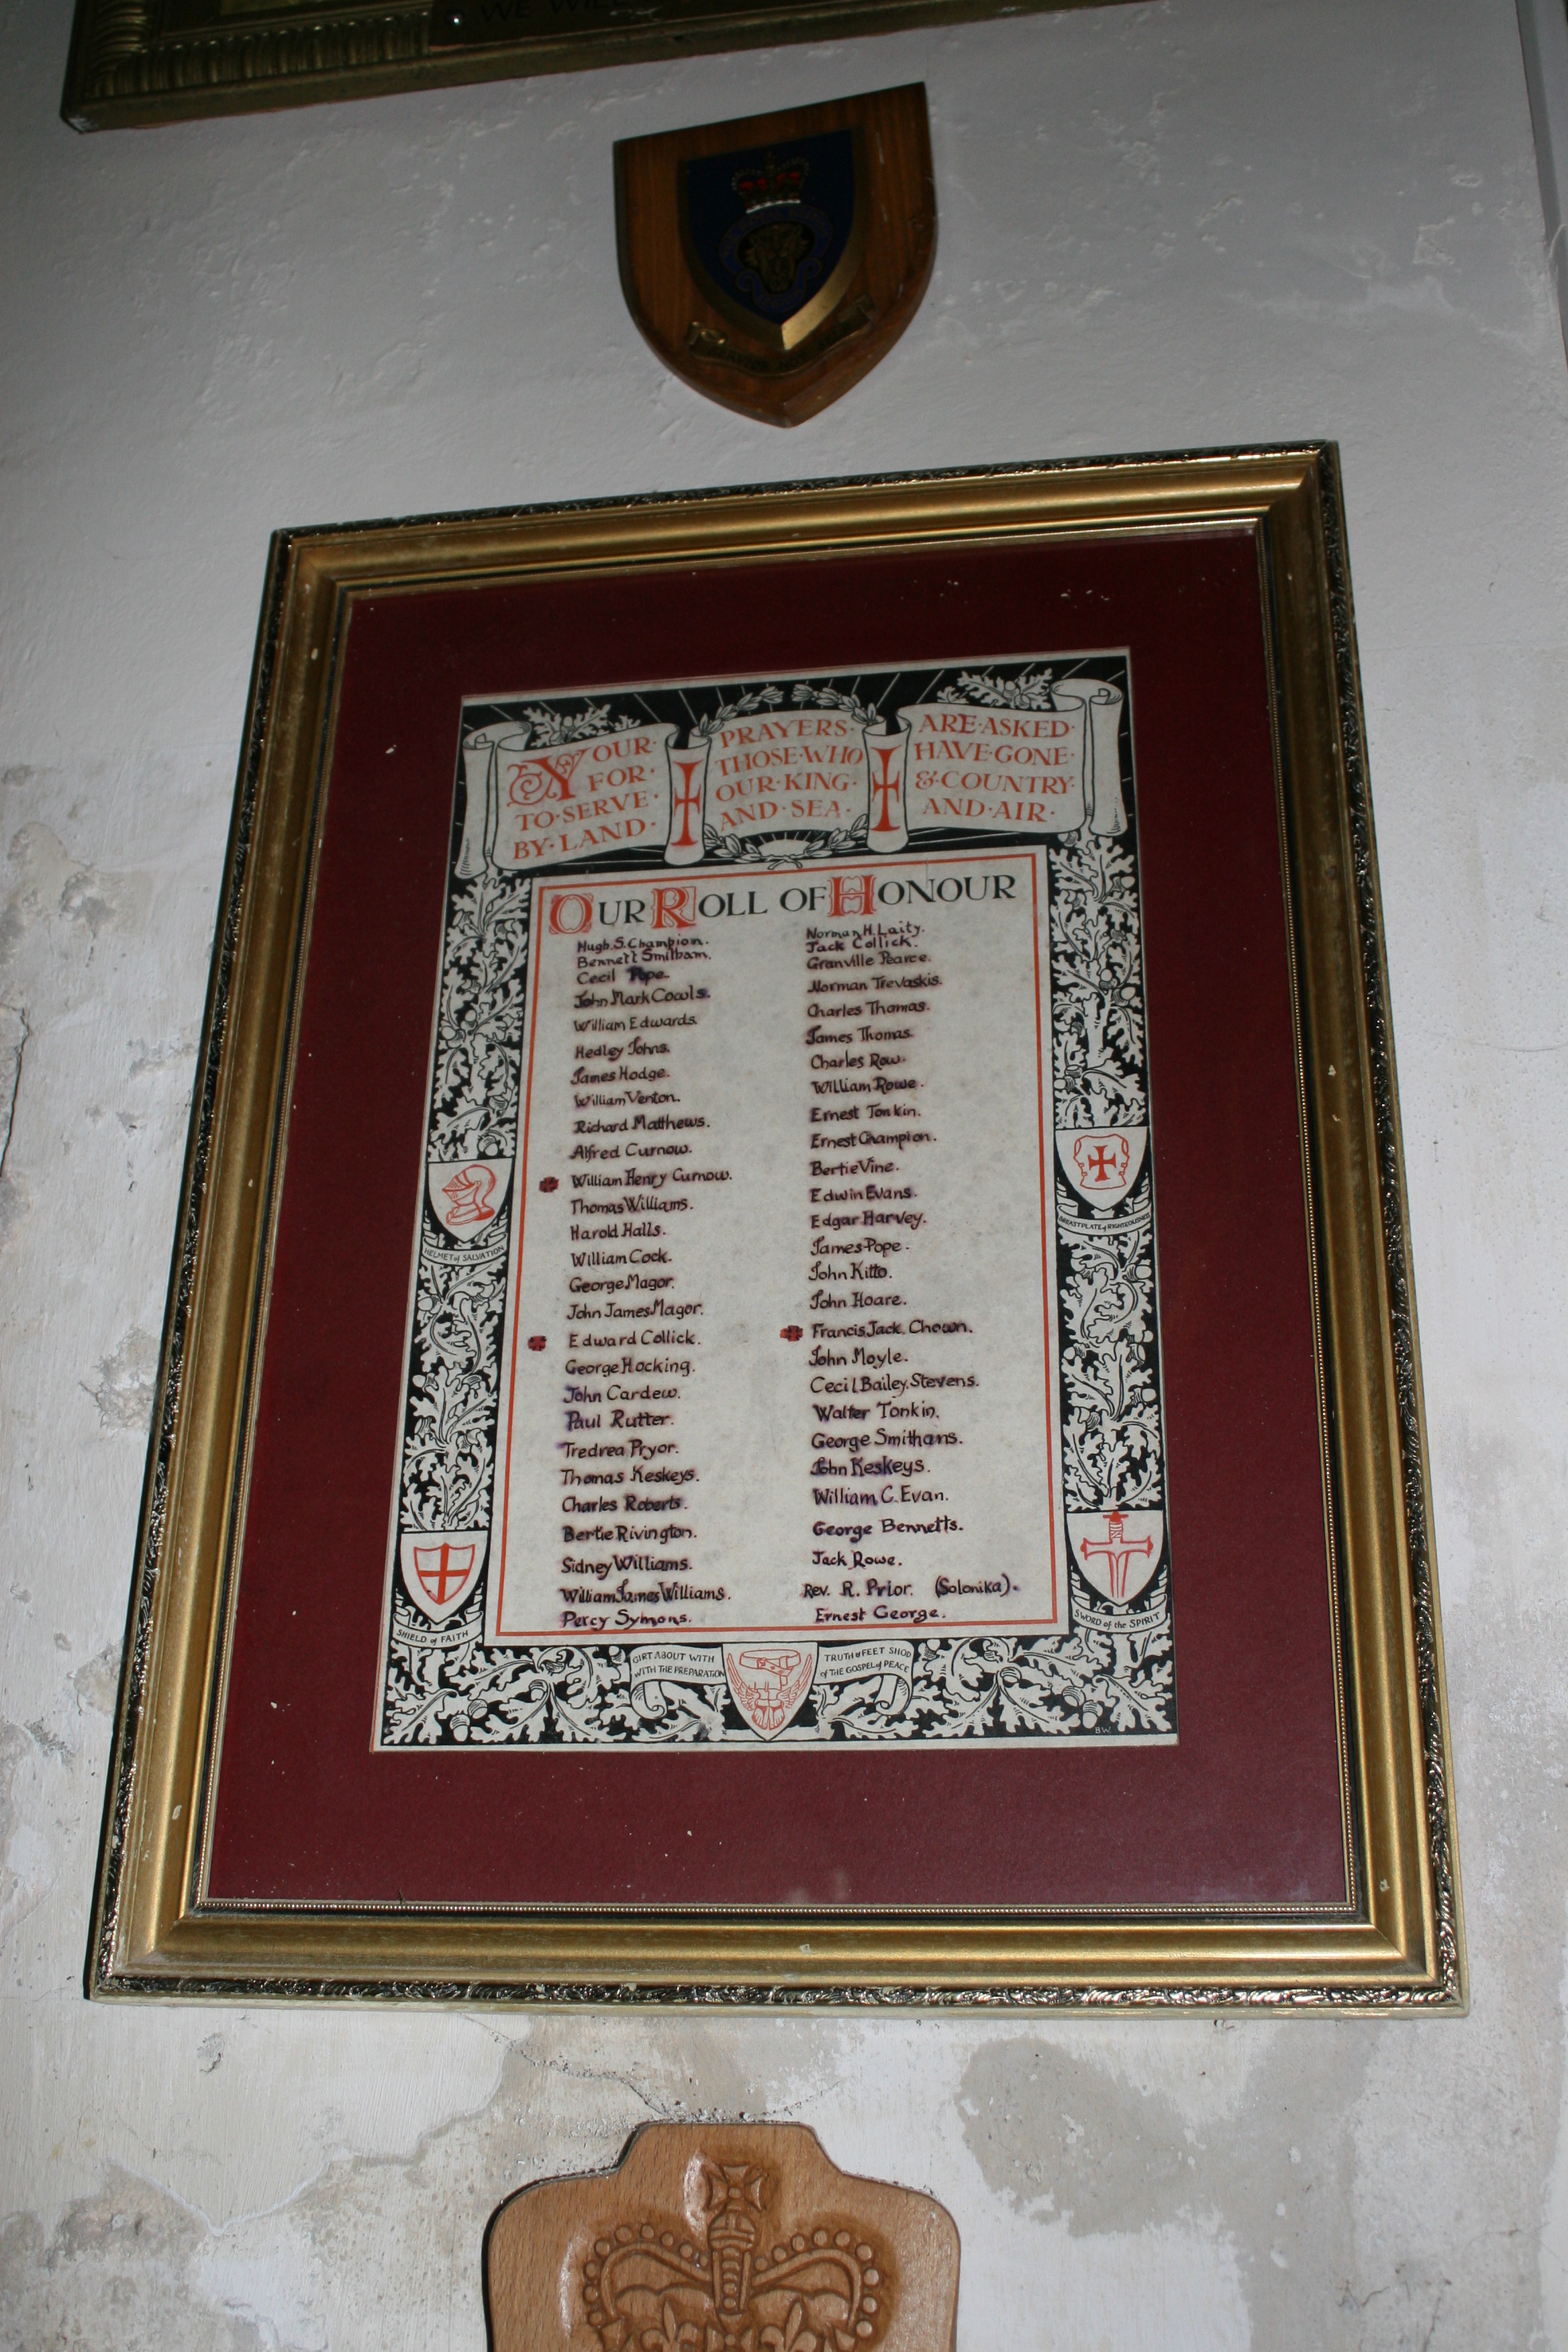 WE WILL
YOUR · PRAYERS · ARE · ASKED ·
FOR · THOSE · WHO HAVE · GONE ·
TO · SERVE · OUR · KING · & · COUNTRY ·
BY · LAND · AND · SEA · AND · AIR ·
OUR ROLL OF HONOUR
Hugh. S. Champion.
Bennett Smitham.
Cecil Pope.
John Mark Cowls.
William Edwards.
Hedley Johns.
James Hodge.
William Venton.
Richard Matthews.
Alfred Curnow.
William Henry Curnow.
Thomas Williams.
Harold Halls.
William Cock.
George Magor.
John James Magor.
Edward Collick.
George Hocking.
John Cardew.
Paul Rutter.
Tredrea Pryor.
Thomas Keskeys.
Charles Roberts.
Bertie Rivington.
Sidney Williams.
William James Williams.
Percy Symons.
Norman H. Laity.
Jack Collick.
Granville Pearce.
Norman Trevaskis.
Charles Thomas.
James Thomas.
Charles Row.
William Rowe.
Ernest Tonkin.
Ernest Champion.
Bertie Vine.
Edwin Evans.
Edgar Harvey.
James Pope.
John Kitto.
John Hoare.
Francis Jack. Chown.
John Moyle.
Cecil Bailey. Stevens.
Walter Tonkin.
George Smithans.
John Keskeys.
William C. Evan.
George Bennetts.
Jack Rowe.
Rev. R. Prior. (Solonika).
Ernest George.
HELMET of SALVATION
BREASTPLATE of RIGHTEOUSNESS
SHIELD of FAITH
SWORD of the SPIRIT
GIRT ABOUT WITH TRUTH & FEET SHOD
WITH THE PREPARATION of THE GOSPEL of PEACE
B.W.